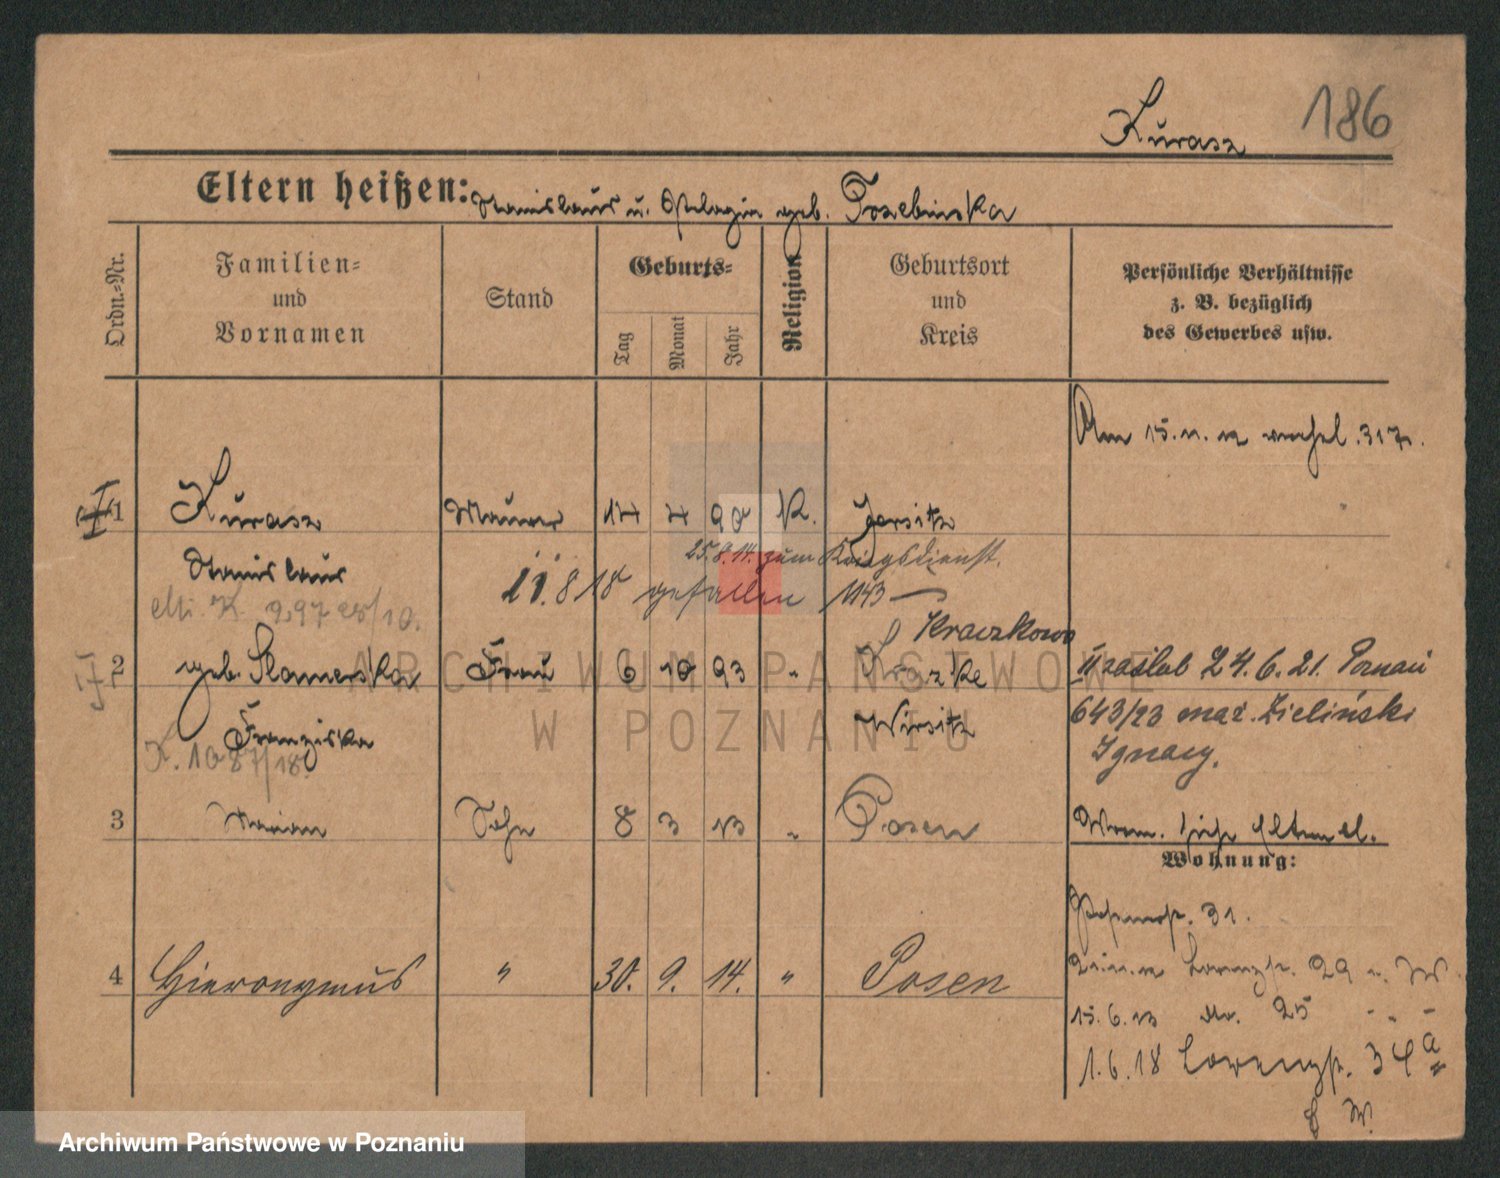 186
Kurasz
Eltern heißen: Stanislaus u. Pelagia geb. Trzebinska
Ordn.-Nr.
Familien-
und
Vornamen
Stand
Geburts-
Tag
Monat
Jahr
Religion
Geburtsort
und
Kreis
Persönliche Verhältnisse
z. B. bezüglich
des Gewerbes usw.
Am 15. 11. 12
1 Kurasz Maurer 14 4 90 K. Jersitz
Stanislaus
25.8.14. zum Kriegsdienst.
11. 8 18 gefallen 1143
K. 297 /10.
Kraczkowo
2 geb. Slamerska Frau 6 10 93 " Kraczke
Franziska Wirsitz
K. 1087/18.
II zaślub 24. 6. 21. Poznań
643/23 maż. Zieliński
Ignacy.
3 Marian Sohn 8 3 13 " Posen
Wohnung:
31.
4 Hieronymus " 30. 9. 14. " Posen
Lorenzstr. 29
15. 6. 13 Nr. 25 - " -
1. 6. 18 Lorenzstr. 34 a
W.
ARCHIWUM PAŃSTWOWE
W POZNANIU
Archiwum Państwowe w Poznaniu